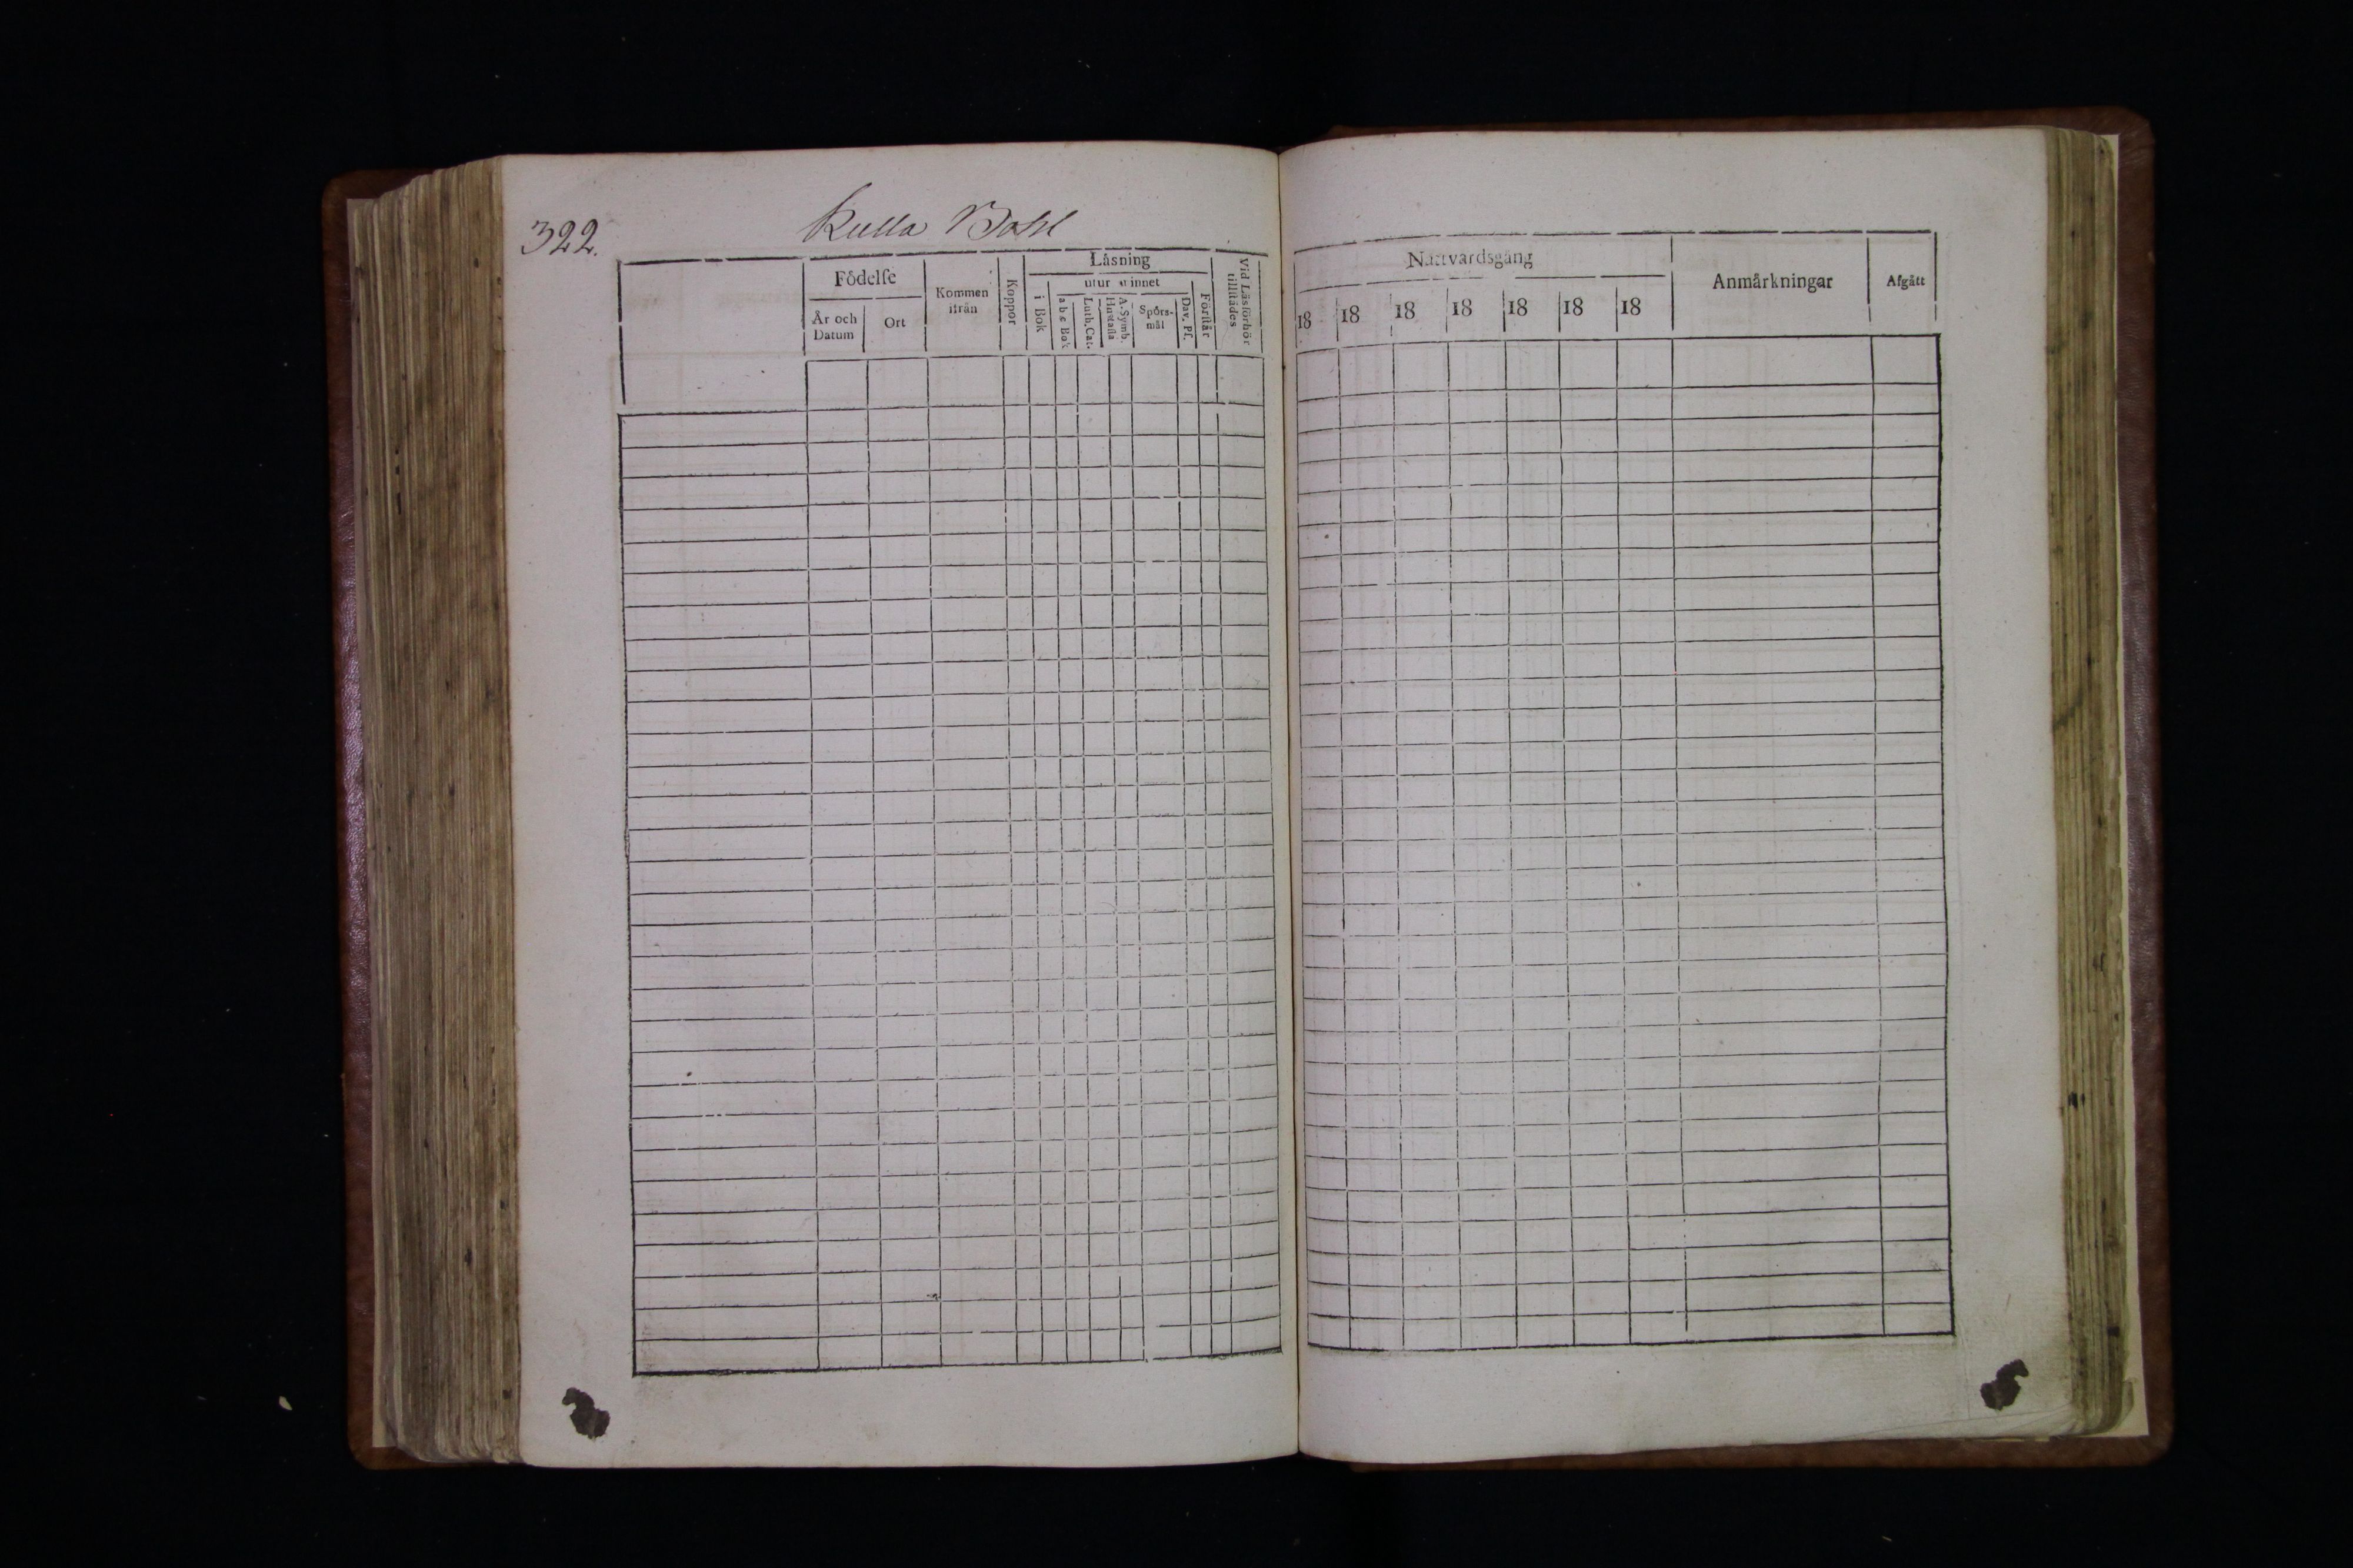 322.
Kulla Bohl
Födelse
År och Datum
Ort
Kommen ifrån
Koppor
Läsning
i Bok
utur minnet
a b c Bok
Luth. Cat.
A. Symb. Hustafla
Spörs-mål
Dav. Ps.
Förstår
Vid Läsförhör tillstädes
Nattvardsgång
18 18 18 18 18 18 18
Anmärkningar
Afgått